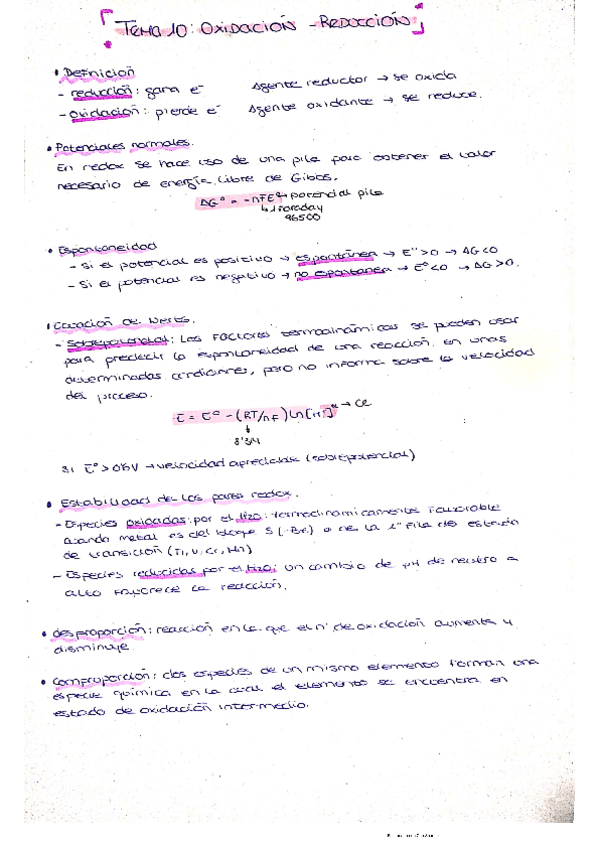 TEMA 10: OXIDACIÓN - REDUCCIÓN
• Definición
- reducción: gana e⁻ Agente reductor → se oxida
- oxidación: pierde e⁻ Agente oxidante → se reduce.
• Potenciales normales.
En redox se hace uso de una pila para obtener el valor
necesario de energía libre de Gibbs.
ΔG° = -nFE° → potencial pila
↳ Faraday
96500
• Espontaneidad
- Si el potencial es positivo → espontánea → E° > 0 → ΔG < 0
- Si el potencial es negativo → no espontánea → E° < 0 → ΔG > 0.
- Sobrepotencial: Los factores termodinámicos se pueden usar
para predecir la espontaneidad de una reacción en unas
determinadas condiciones, pero no informa sobre la velocidad
del proceso.
E = E° - (RT/nF) Ln [H⁺]
8'314
Si E° > 0'6V → velocidad apreciable (sobrepotencial)
• Estabilidad de los pares redox.
- Especies oxidadas por el H₂O: termodinámicamente favorable
cuando metal es del bloque S (-Be) o de la 1ª fila de
de transición (Ti, V, Cr, Mn)
- Especies reducidas por el H₂O: un cambio de pH de neutro a
alto favorece la reacción.
• desproporción: reacción en la que el nº de oxidación aumenta y
disminuye.
• Comproporción: dos especies de un mismo elemento forman una
especie química en la cual el elemento se encuentra en
estado de oxidación intermedio.